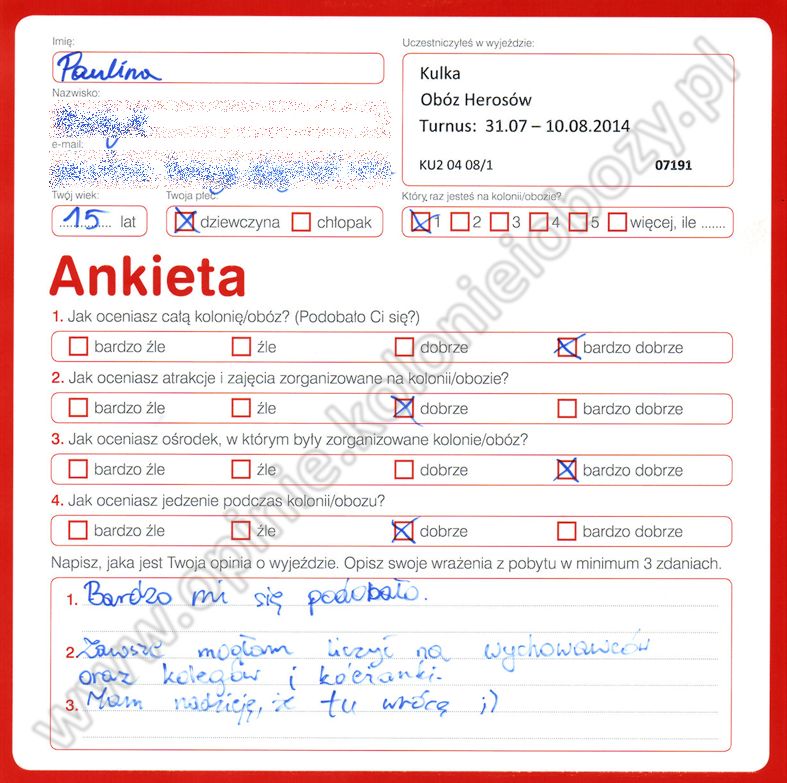 Imię:
Paulina
Nazwisko:
e-mail:
Twój wiek:
15 lat
Twoja płeć:
dziewczyna chłopak
Uczestniczyłeś w wyjeździe:
Kulka
Obóz Herosów
Turnus: 31.07 – 10.08.2014
KU2 04 08/1 07191
Który raz jesteś na kolonii/obozie?
1 2 3 4 5 więcej, ile .......
Ankieta
1. Jak oceniasz całą kolonię/obóz? (Podobało Ci się?)
bardzo źle źle dobrze bardzo dobrze
2. Jak oceniasz atrakcje i zajęcia zorganizowane na kolonii/obozie?
bardzo źle źle dobrze bardzo dobrze
3. Jak oceniasz ośrodek, w którym były zorganizowane kolonie/obóz?
bardzo źle źle dobrze bardzo dobrze
4. Jak oceniasz jedzenie podczas kolonii/obozu?
bardzo źle źle dobrze bardzo dobrze
Napisz, jaka jest Twoja opinia o wyjeździe. Opisz swoje wrażenia z pobytu w minimum 3 zdaniach.
1. Bardzo mi się podobało.
2. Zawsze mogłam liczyć na wychowawców
oraz kolegów i koleżanki.
3. Mam nadzieję, że tu wrócę ;)
www.opinie.kolonieiobozy.pl